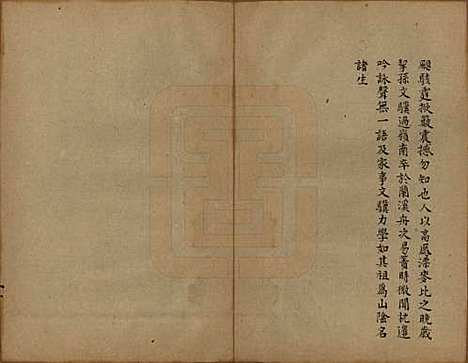 颶駭霆掀嚴震撼勿知也人以高鳳漂麥比之晚歲
挈孫文驥過嶺南卒於蘭溪舟次易簀時微聞枕邊
吟詠聲無一語及家事文驥力學如其祖爲山陰名
諸生